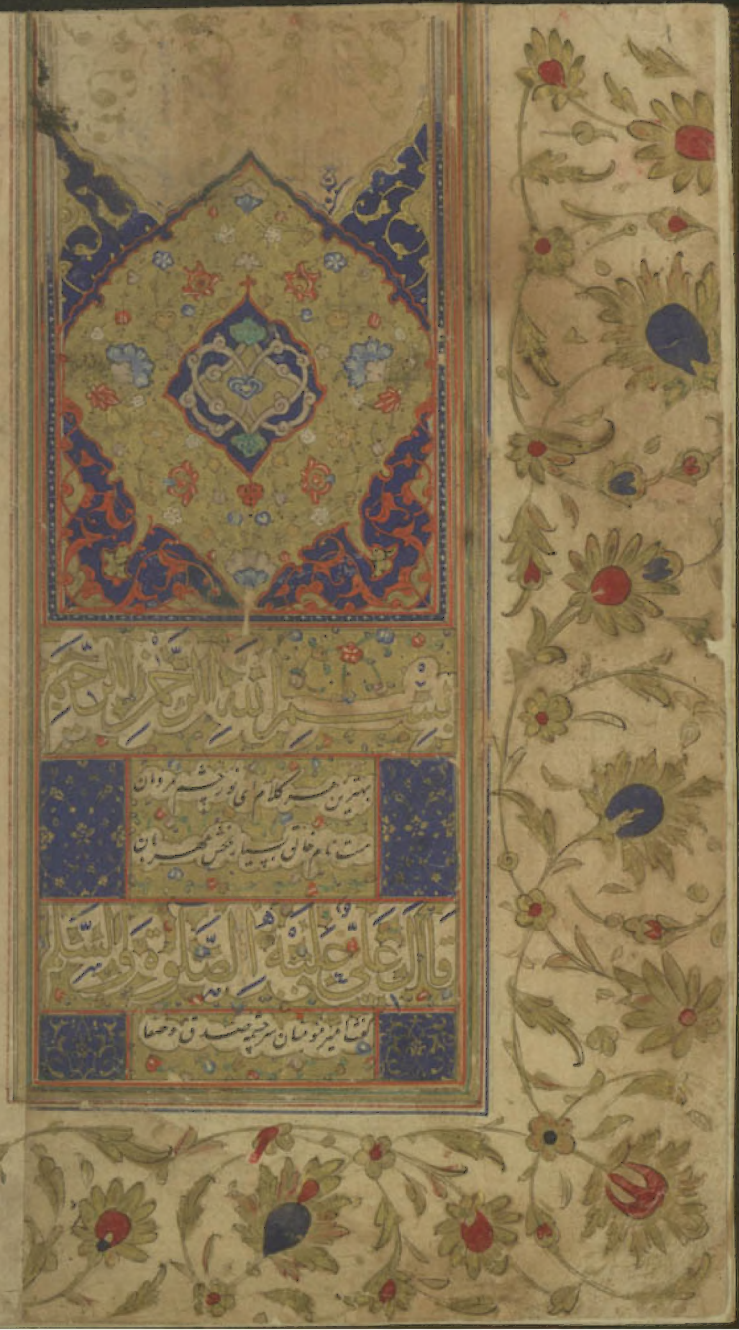 بِسْمِ اللّٰهِ الرَّحْمٰنِ الرَّحِيمِ
بهترین هر کلام ای نور چشم مردمان
هست نام خالق بسیار بخش مهربان
قَالَ عَلِيٌّ عَلَيْهِ الصَّلٰوةُ وَالسَّلَامُ
گفت شاه مؤمنان سرچشمه صدق و صفا